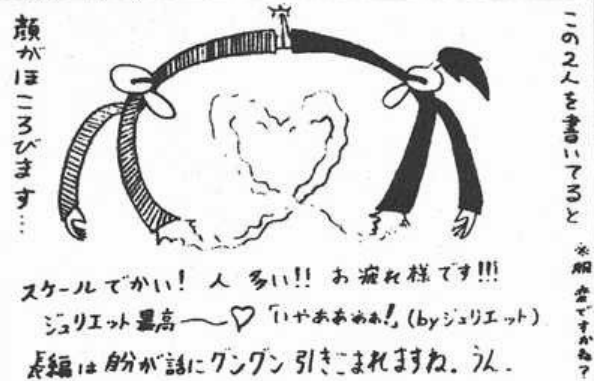 この2人を書いてると
顔がほころびます…
スケールでかい! 人 多い!! お疲れ様です!!!
ジュリエット最高〜♡「いやああああ!」(byジュリエット)
長編は自分が話にグングン引きこまれますね。うん.
ですかね?